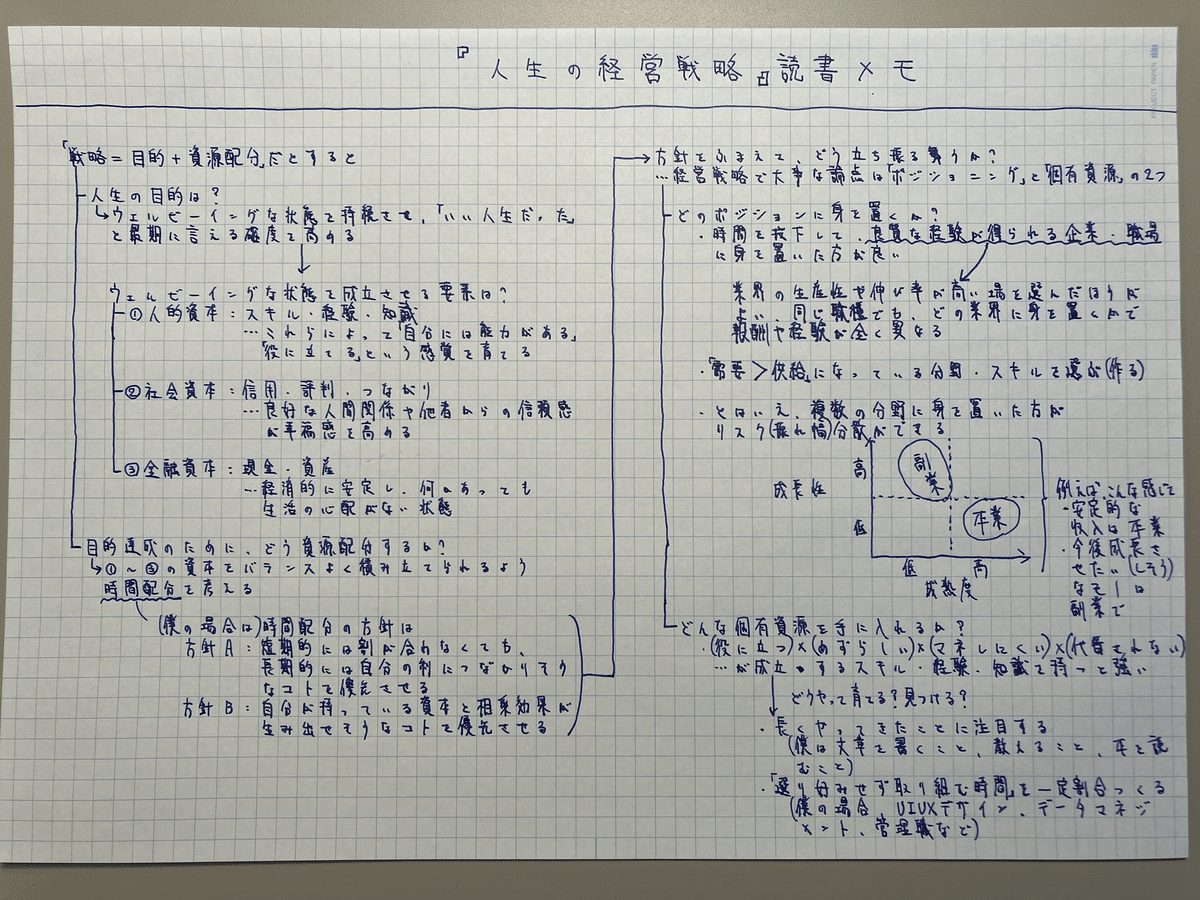 『人生の経営戦略』読書メモ
「戦略=目的+資源配分」だとすると
人生の目的は?
↳ウェルビーイングな状態を持続させ、「いい人生だった」
と最期に言える確度を高める
ウェルビーイングな状態を成立させる要素は?
①人的資本:スキル・経験・知識
…これらによって「自分には能力がある」
「役に立てる」という感覚を育てる
②社会資本:信用・評判・つながり
…良好な人間関係や他者からの信頼感
が幸福感を高める
③金融資本:現金・資産
…経済的に安定し、何があっても
生活の心配がない状態
目的達成のために、どう資源配分するか?
↳①〜③の資本をバランスよく積み立てられるよう
時間配分を考える
(僕の場合は)時間配分の方針は
方針A:短期的には割が合わなくても、
長期的には自分の利につながりそう
なコトを優先させる
方針B:自分が持っている資本と相乗効果が
生み出せそうなコトを優先させる
方針をふまえて、どう立ち振る舞うか?
…経営戦略で大事な論点は「ポジショニング」と「個有資源」の2つ
どのポジションに身を置くか?
・時間を投下して、良質な経験が得られる企業・職場
に身を置いた方が良い
業界の生産性や伸び率が高い場を選んだほうが
よい。同じ職種でも、どの業界に身を置くかで
報酬や経験が全く異なる
・「需要>供給」になっている分野・スキルを選ぶ(作る)
・とはいえ、複数の分野に身を置いた方が
リスク(振れ幅)分散ができる
成長性
高
低
副業
本業
低 高
成熟度
例えば、こんな感じで
・安定的な
収入は本業
・今後成長さ
せたい(しそう)
なモノは
副業で
どんな個有資源を手に入れるか?
・(役に立つ)×(めずらしい)×(マネしにくい)×(代替されない)
…が成立するスキル・経験・知識を持つと強い
どうやって育てる?見つける?
・長くやってきたことに注目する
(僕は文章を書くこと、教えること、本を読
むこと)
・「選り好みせず取り組む時間」を一定割合つくる
(僕の場合、UIUXデザイン、データマネジ
メント、管理職など)